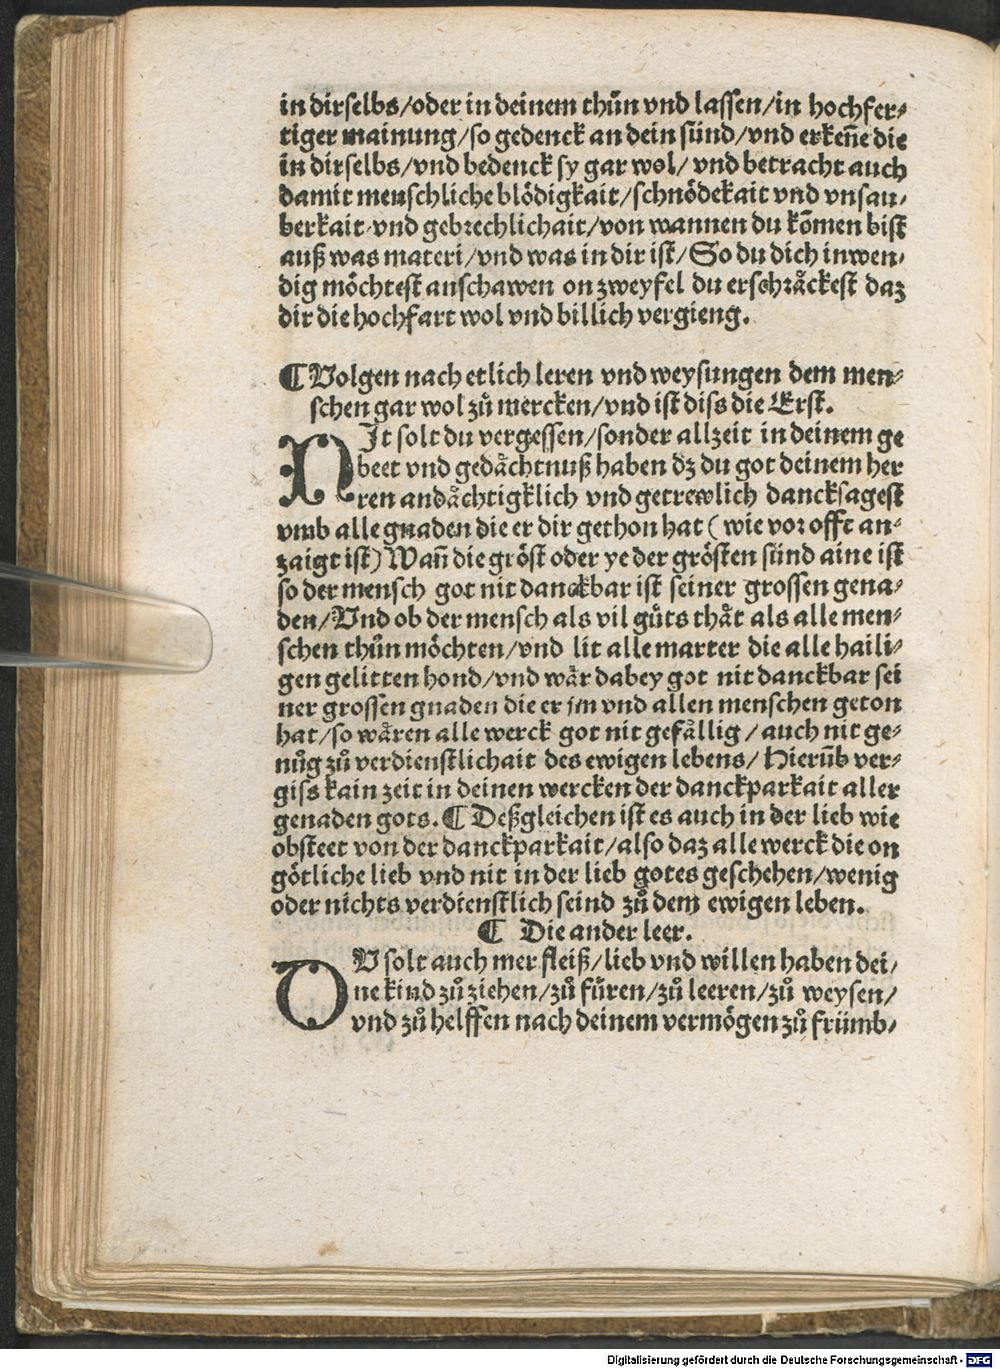 in dirſelbs/oder in deinem thůn vnd laſſen/in hochfer⸗
tiger mainung/ſo gedenck an dein sünd/vnd erkeñe die
in dirſelbs/vnd bedenck ſy gar wol/ vnd betracht auch
damit menſchliche blödigkait/ſchnödekait vnd vnſau⸗
berkait/vnd gebrechlichait/von wannen du kōmen biſt
auß was materi/vnd was in dir iſt/So du dich inwen⸗
dig möchteſt anſchawen on zweyfel du erſchꝛaͤckeſt daz
dir die hochfart wol vnd billich vergieng.
¶ Volgen nach etlich leren vnd weyſungen dem men⸗
ſchen gar wol zů mercken/vnd iſt diſs die Erſt.
NIt ſolt du vergeſſen/ſonder allzeit in deinem ge
beet vnd gedaͤchtnuß haben dz du got deinem her
ren andaͤchtigklich vnd getrewlich danckſageſt
vmb alle gnaden die er dir gethon hat (wie voꝛ offt an⸗
zaigt iſt) Wañ die gröſt oder ye der gröſten sünd aine iſt
ſo der menſch got nit danckbar iſt ſeiner groſſen gena⸗
den/Vnd ob der menſch als vil gůts thaͤt als alle men⸗
ſchen thůn möchten/vnd lit alle marter die alle haili⸗
gen gelitten hond/vnd waͤr dabey got nit danckbar ſei
ner groſſen gnaden die er jm vnd allen menſchen geton
hat/ſo waͤren alle werck got nit gefaͤllig/auch nit ge⸗
nůg zů verdienſtlichait des ewigen lebens/Hierūb ver⸗
giſs kain zeit in deinen wercken der danckparkait aller
genaden gots. ¶ Deßgleichen iſt es auch in der lieb wie
obſteet von der danckparkait/alſo daz alle werck die on
götliche lieb vnd nit in der lieb gotes geſchehen/wenig
oder nichts verdienſtlich ſeind zů dem ewigen leben.
¶ Die ander leer.
DV ſolt auch mer fleiß/lieb vnd willen haben dei⸗
ne kind zů ziehen/zů fůren/zů leeren/zů weyſen/
vnd zů helffen nach deinem vermögen zů frümb⸗
Digitalisierung gefördert durch die Deutsche Forschungsgemeinschaft - DFG